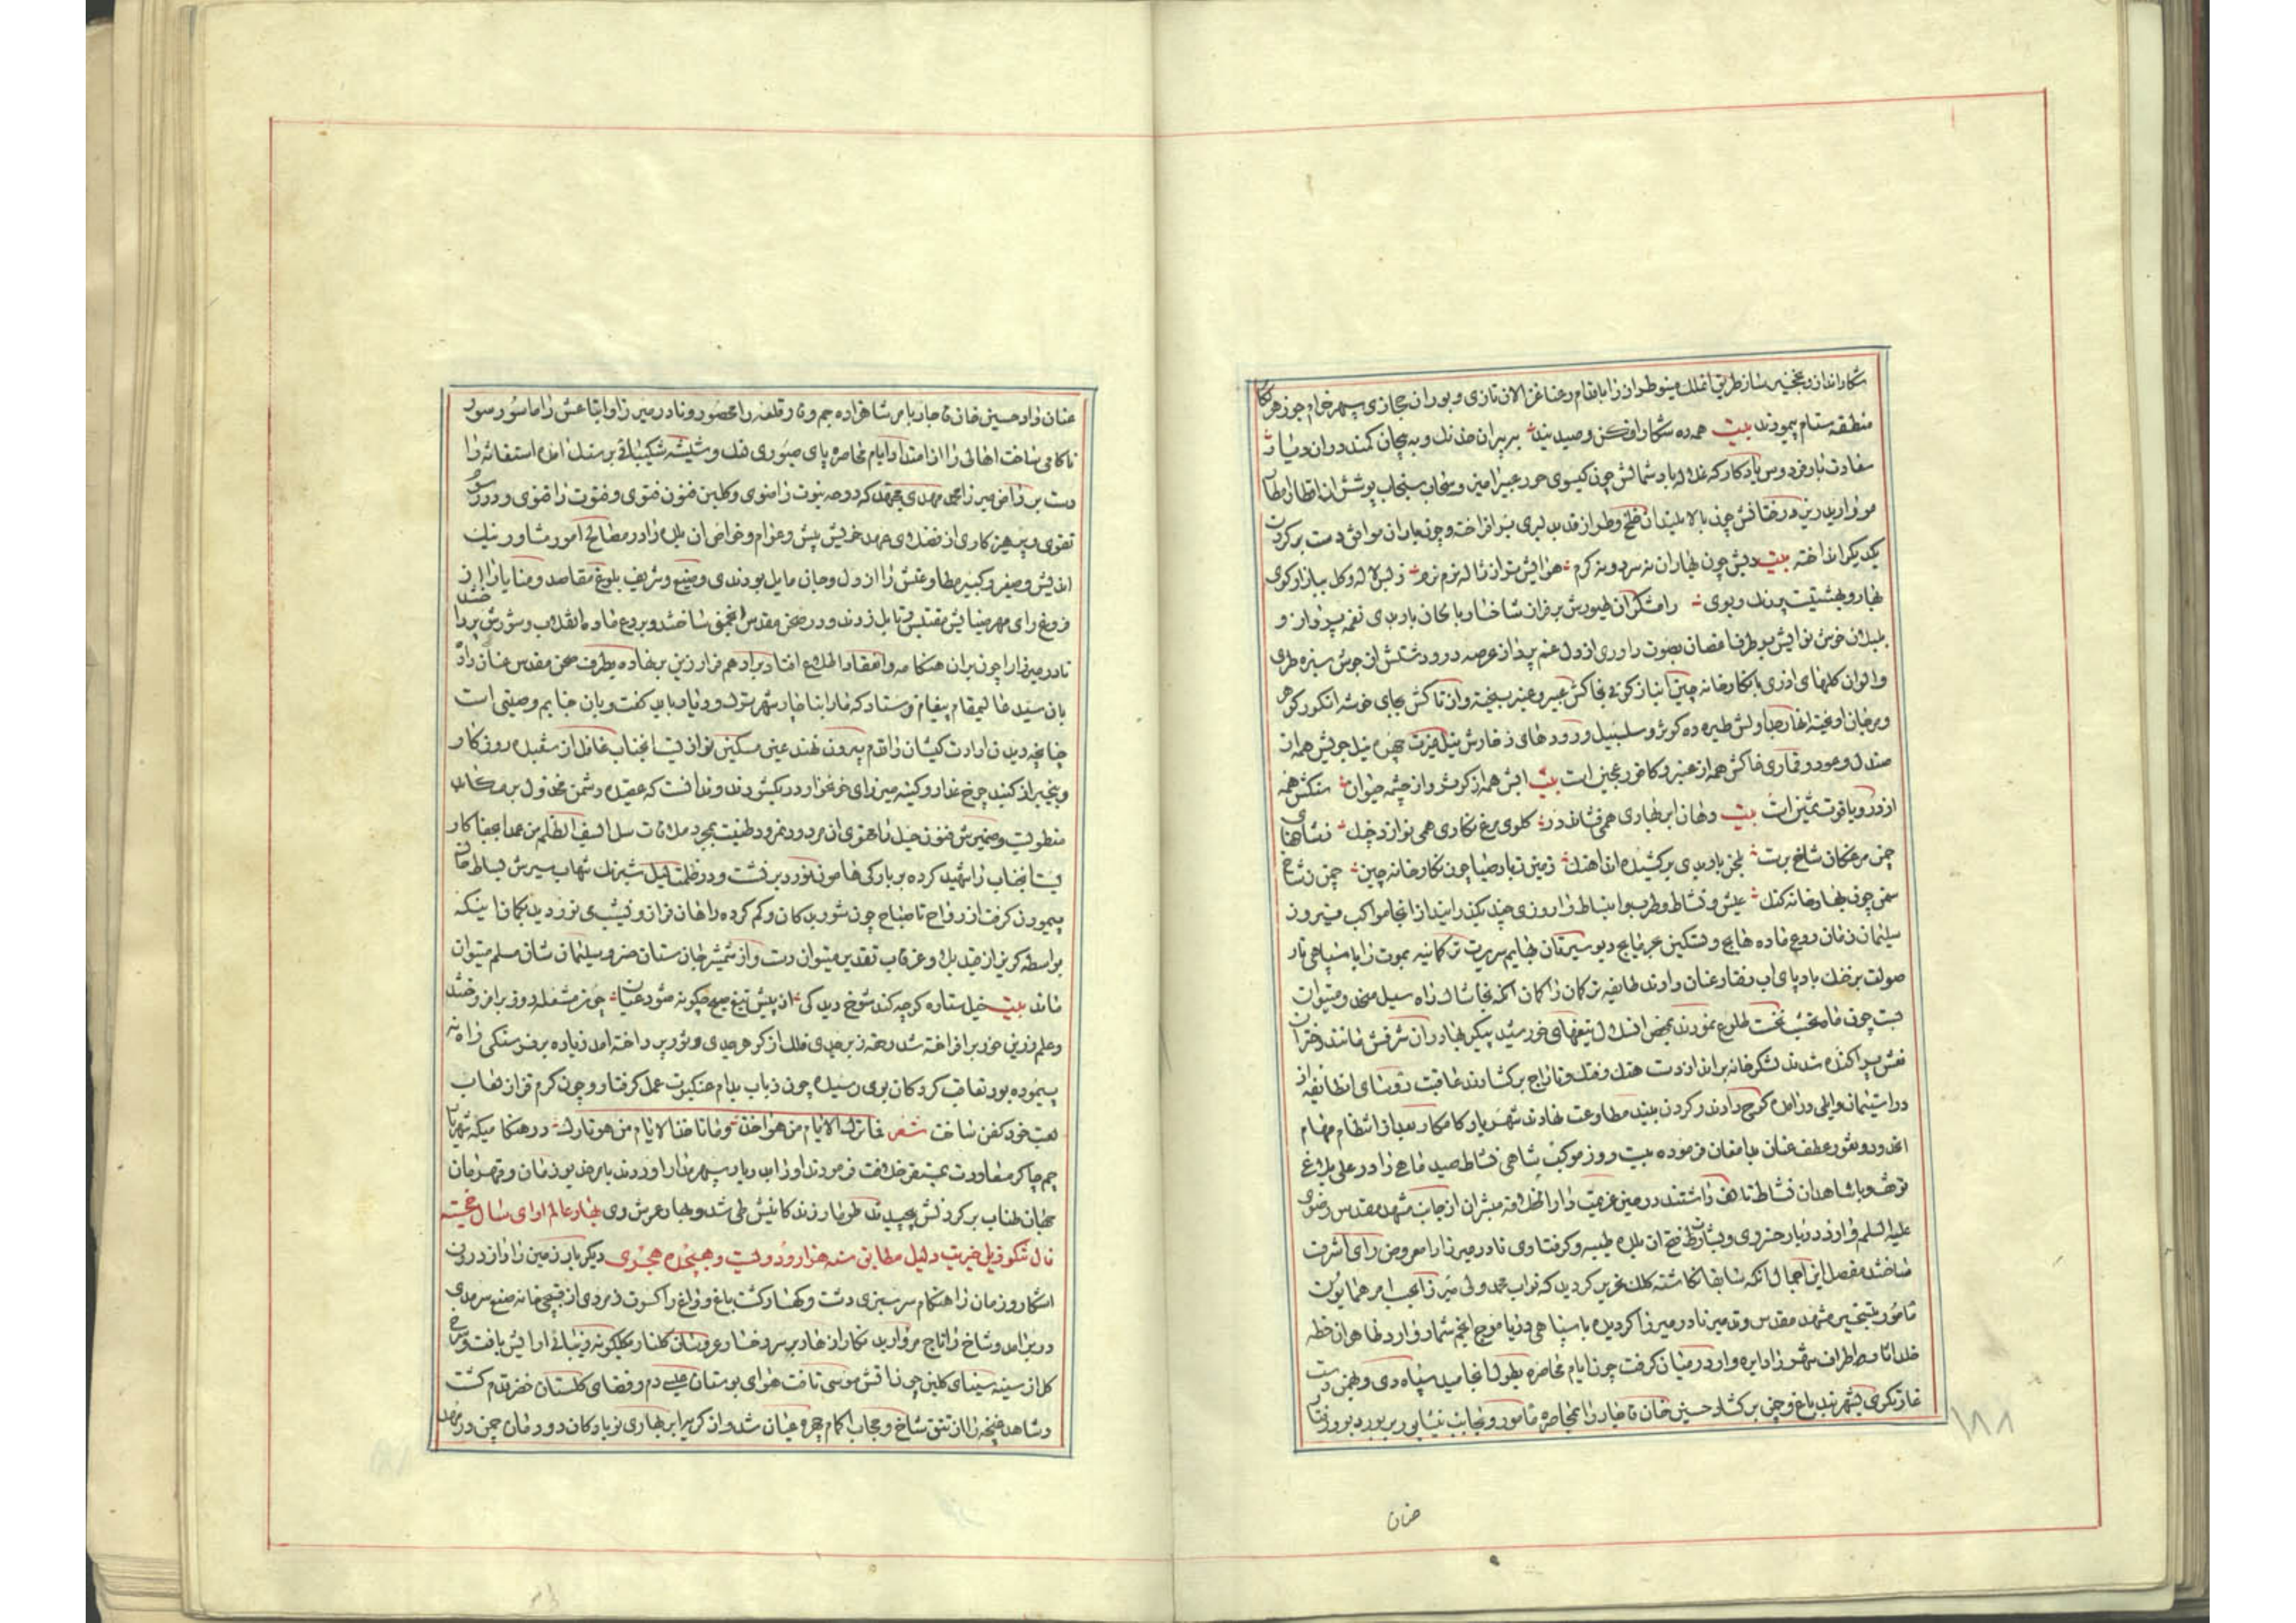 شکار انداز و نخجیر ساز طریق مینو طراز را باقدام رعنا غزالان تازی و بوران حجازی سپهر خرام جوزهر رکاب
منطقه ستام پیمودند بیت همه ره شکار افکن و صید بند بپران خدنک و به پیچان کمند در ان
سعادت بار فردوس یادکار که باد شمالش چون کیسوی حور عبیر امیز و سحاب سنجاب پوشش از امطار
مروارید ریز درختانش چون بالا بلندان خلخ و طراز قد بدلبری برافراخته و چون یاران موافق دست بر کردن
یکدیکر انداخته بیت دیش چون بهاران نه سرد و نه کرم هوایش تر از ژاله نرم نرم ز بس لاله و کل ببازار و کوی
بهار بهشتیست پر رنک و بوی رامشکران طیورش بر فراز شاخسار بالحان باربدی نغمه پرداز و
بلبلان خوش نوایش بر طرف اغصان بصوت راوری از دل غم پرداز عرصه در و دشتش از جوش سبزه طری
و الوان کلهای اذری با نکارخانه چین انباز کوئی بخاکش عبیر و عنبر بیخته و از تاکش بجای خوشه انکور کوهر
و مرجان اویخته انهار جداولش طیره ده کوثر و سلسبیل و رودهای زخارش
صندل و عود و قماری خاکش همه از عنبر و کافور عجین است بیت ابش همه از کوثر و از چشمه حیوان سنکش همه
از در و یاقوت ثمین است بیت دهان ابر بهاری همی فشاند در کلوی مرغ نکاری همی نوازد چنک فشانهای
چمن مرغکان شاخ پرست بلحن باربدی برکشیده اند اهنک زمین ز باد صبا چون نکارخانه چین چمن ز شاخ
سمن چون بهارخانه کنک عیش و نشاط و طرب و انبساط را روزی چند بکذرانیدند از انجا مواکب فیروز
سلیمان زمان دفع ماده هایج و تسکین بهایم سریرت ترکمانیه یموت را با سپاهی نار
صولت بر خنک بادپای اب رفتار عنان دادند طایفه ترکمان را کمان انکه بخاشاک راه سیل
بست چون ماه نخشب طلوع نمودند بمحض انسلال تیغهای خورشید پیکر بهادران شرفش مانند دختران
نعش پراکنده شدند لشکر خانه برانداز دست هتک و فتک و تاراج برکشادند عاقبت رؤسای انطایفه از
در استیمان و ایلی در امده کوچ دادند و کردن ببند مطاوعت نهادند شهریار کامکار بعد از انتظام مهام
انحدود و ثغور عطف عنان بدامغان فرموده بیست روز موکب شاهی نشاط صید ماهی را در علی بلاغ
توقف و با شاهدان نشاط تالف داشتند در حین عزیمت دارالخلافه مبشران از جانب مشهد مقدس رضوی
علیه السلم وارد دربار خسروی و بشارت فتح ان بلده طیبه و کرفتاری نادر میرزا را معروض رای اشرف
ساختند مفصل این اجمال انکه سابقا نکاشته کلک تحریر کردید که نواب محمد ولی میرزا بحسب امر همایون
مامور بتسخیر مشهد مقدس و تدمیر نادر میرزا کردیده با سپاهی دریا موج انجم شمار وارد ظاهر ان خطه
خلد اثار و اطراف شهر را دایره وار در میان کرفت چون ایام محاصره بطول انجامید سپاه دی و بهمن دست
غارتکری بشهربند باغ و چمن برکشاد حسین خان قاجار را بمحاصره مامور و بجانب نیشابور
عنان
عنان داد حسین خان قاجار بامر شاهزاده جم وقار قلعه را محصور و نادر میرزا و اتباعش را ماسور سور
ناکامی ساخت اهالی را از امتداد ایام محاصره پای صبوری لنک و شیشه شکیبائی بر سنک امده استغاثه را
دست بر دامن میرزا محمد مهدی مجتهد که دوحه نبوت را ضوی و کلبن فنون فتوی و فتوت را
تقوی و پرهیزکاری از فضلای عهد خویش پیش و عوام و خواص ان بلده را در مصالح امور مشاور نیک
اندیش و صغیر و کبیر مطاوعتش را از دل و جان مایل بودند و وضیع و شریف بلوغ مقاصد و منایا را از
فروغ رای مهر ضیایش مقتبس زدند و در صحن مقدس مجتمع ساختند و بر دفع ماده انقلاب و شورش پرداختند
نادر میرزا را چون بر ان هنکامه و انعقاد اطلاع افتاد بر ادهم فرار زین بر نهاده بطرف صحن مقدس عنان داد
بان سید عالیمقام پیغام فرستاد که مارا بناچار شهر ترک و دیار باید کفت و بان جنابم وصیتی است
چنانچه دیدن ارادت کیشان را قدم بیرون نهند عین مسکین نوازیست انجناب غافل از شعبده روزکار
و بیخبر از کید چرخ غدار و کینه میرزای خونخوار در بکشودند و ندانست که عقیده دشمن مخذول بر مکاید
منطویست و ضمیرش فنون حیل را محتوی ان مردود نمرود طینت بمجرد ملاقات سل السیف الظلم من غمد الجفا کار
است انجناب را شهید کرده بر بارکی هامون نورد بر نشست و در ظلمت لیل شبرنک شهاب سیرش بساط
پیمودن کرفت از رواح تا صباح چون شوریدکان و کم کرده راهان فراز و نشیبی نوردید بکمان اینکه
بواسطه کریز از صید بلا و غرقاب تقدیر میتوان رست و از شمشیر جان ستان خسرو سلیمان شان مسلم میتوان
ماند بیت خیل ستاره کر چه کند شوخ دیدکی از پیش تیغ صبح چکونه شود عیان چون مشعله روز برافروختند
و علم زرین خور برافراخته شد و حقه زبرجدی فلک از کوهر جدی و ثور پرداخته امد زیاده بر فرسنکی راه نه
پیموده بود تعاقب کردکان بوی رسیده چون ذباب بدام عنکبوت عمل کرفتار و چون کرم قز از لعاب
لعب خود کفن ساخت شعر فما ترک الایام من هو اخذ و ما تاخذ الایام من هو تارک در هنکامیکه شهریار
جم چاکر معاودت بمستقر خلافت فرمودند او را بدربار سپهر مدار اوردند بامر خدیو زمان و قهرمان
جهان طناب بر کردنش پیچیدند طومار زندکانیش طی شد و بهار عمرش دی بهار عالم ارای سال خجسته
فال تنکوزئیل خیریت دلیل مطابق سنه هزار و دویست و هیجده هجری دیکر بار زمین را راز درون
اشکار و زمان را هنکام سرسبزی دشت و کهسار کشت باغ و راغ را کسوت زمردی از قیچی خانه صنع سرمدی
در بر امد و شاخ را تاج مروارید نکار از بهار بر سر رخسار عروسان کلنار بکلکونه زیبائی ارایش یافت و
کل از سینه سینای کلبن چون اتش موسی تافت هوای بوستان عیسی دم و فضای کلستان خضر قدم کشت
و شاهد غنچه را از تتق شاخ و حجاب اکمام چهره عیان شد و از کریه ابر بهاری نوباوکان دودمان چمن در مهد
۱۸۸